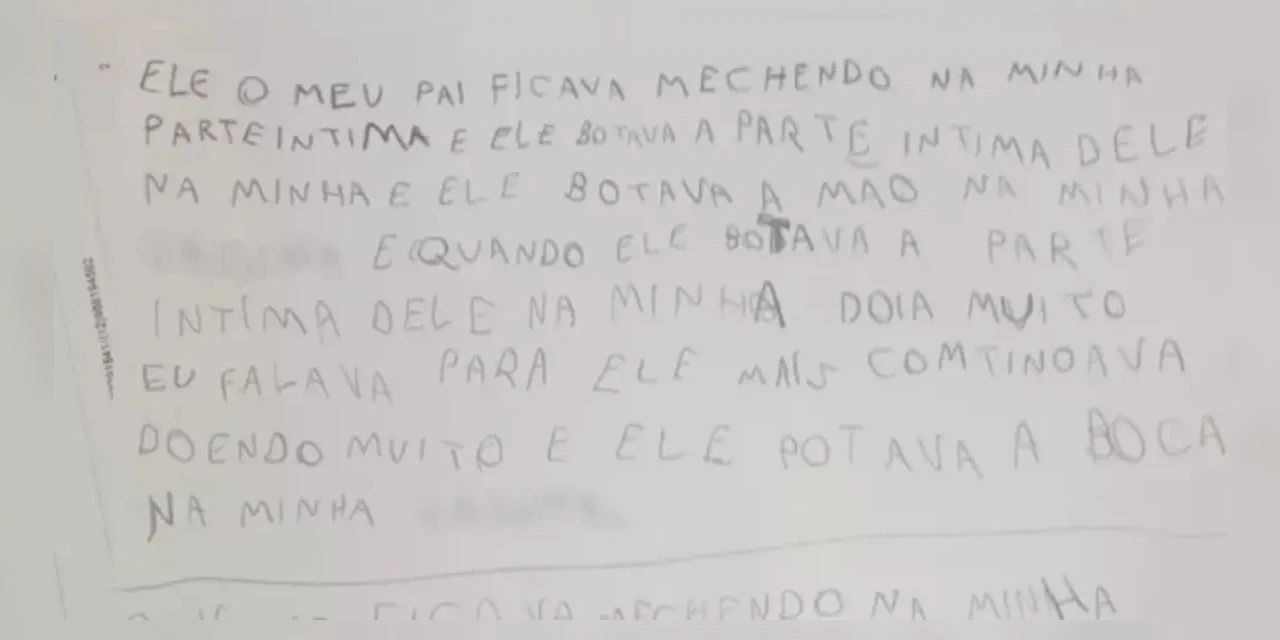 ELE O MEU PAI FICAVA MECHENDO NA MINHA
PARTEINTIMA E ELE BOTAVA A PARTE INTIMA DELE
NA MINHA E ELE BOTAVA A MAO NA MINHA
E QUANDO ELE BOTAVA A PARTE
INTIMA DELE NA MINHA DOIA MUITO
EU FALAVA PARA ELE MAIS COMTINOAVA
DOENDO MUITO E ELE POTAVA A BOCA
NA MINHA
FICAVA MECHENDO NA MINHA